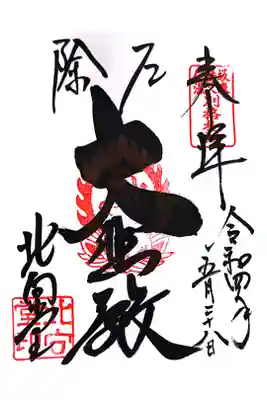 奉拝
令和四年
五月二十八日
厄除
大悲殿
北向堂
北向
堂印